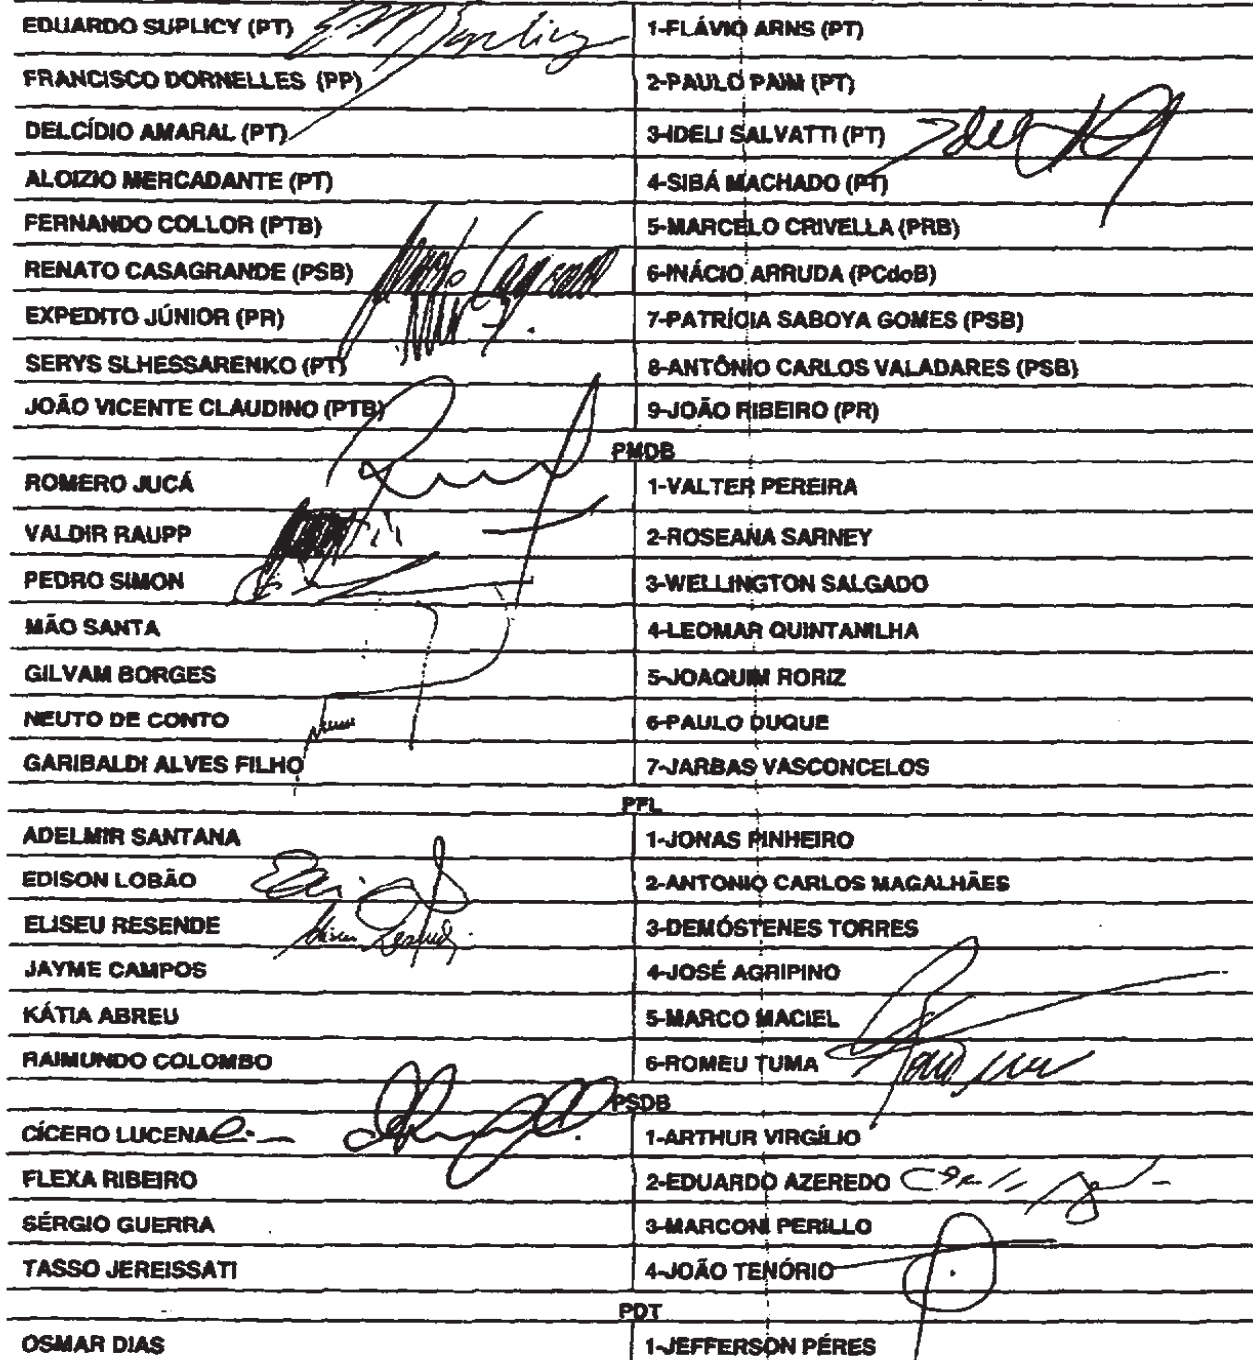 EDUARDO SUPLICY (PT) 1-FLÁVIO ARNS (PT)
FRANCISCO DORNELLES (PP) 2-PAULO PAIM (PT)
DELCÍDIO AMARAL (PT) 3-IDELI SALVATTI (PT)
ALOIZIO MERCADANTE (PT) 4-SIBÁ MACHADO (PT)
FERNANDO COLLOR (PTB) 5-MARCELO CRIVELLA (PRB)
RENATO CASAGRANDE (PSB) 6-INÁCIO ARRUDA (PCdoB)
EXPEDITO JÚNIOR (PR) 7-PATRÍCIA SABOYA GOMES (PSB)
SERYS SLHESSARENKO (PT) 8-ANTÔNIO CARLOS VALADARES (PSB)
JOÃO VICENTE CLAUDINO (PTB) 9-JOÃO RIBEIRO (PR)
PMDB
ROMERO JUCÁ 1-VALTER PEREIRA
VALDIR RAUPP 2-ROSEANA SARNEY
PEDRO SIMON 3-WELLINGTON SALGADO
MÃO SANTA 4-LEOMAR QUINTANILHA
GILVAM BORGES 5-JOAQUIM RORIZ
NEUTO DE CONTO 6-PAULO DUQUE
GARIBALDI ALVES FILHO 7-JARBAS VASCONCELOS
PFL
ADELMIR SANTANA 1-JONAS PINHEIRO
EDISON LOBÃO 2-ANTONIO CARLOS MAGALHÃES
ELISEU RESENDE 3-DEMÓSTENES TORRES
JAYME CAMPOS 4-JOSÉ AGRIPINO
KÁTIA ABREU 5-MARCO MACIEL
RAIMUNDO COLOMBO 6-ROMEU TUMA
PSDB
CÍCERO LUCENA 1-ARTHUR VIRGÍLIO
FLEXA RIBEIRO 2-EDUARDO AZEREDO
SÉRGIO GUERRA 3-MARCONI PERILLO
TASSO JEREISSATI 4-JOÃO TENÓRIO
PDT
OSMAR DIAS 1-JEFFERSON PÉRES